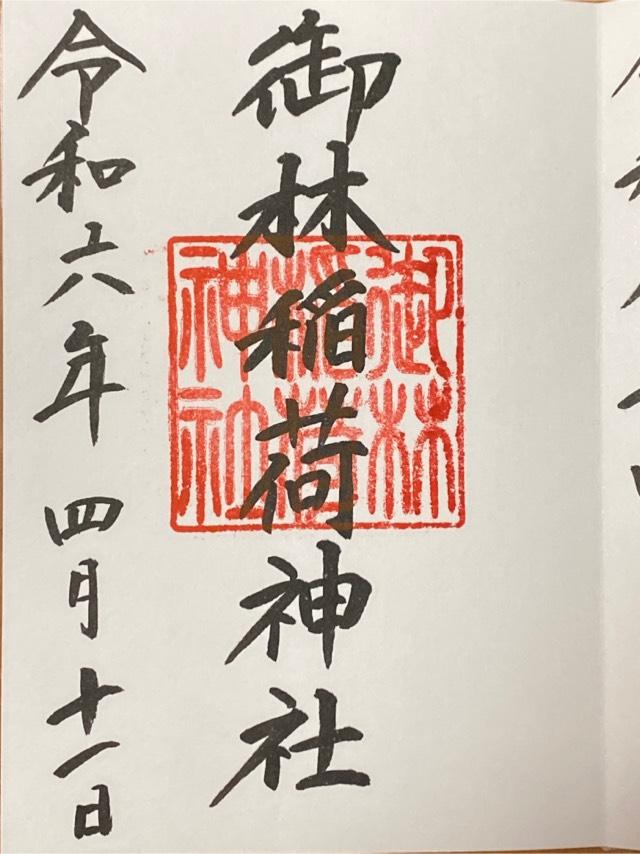 御林稲荷神社
御林
稲荷
神社
令和六年四月十一日